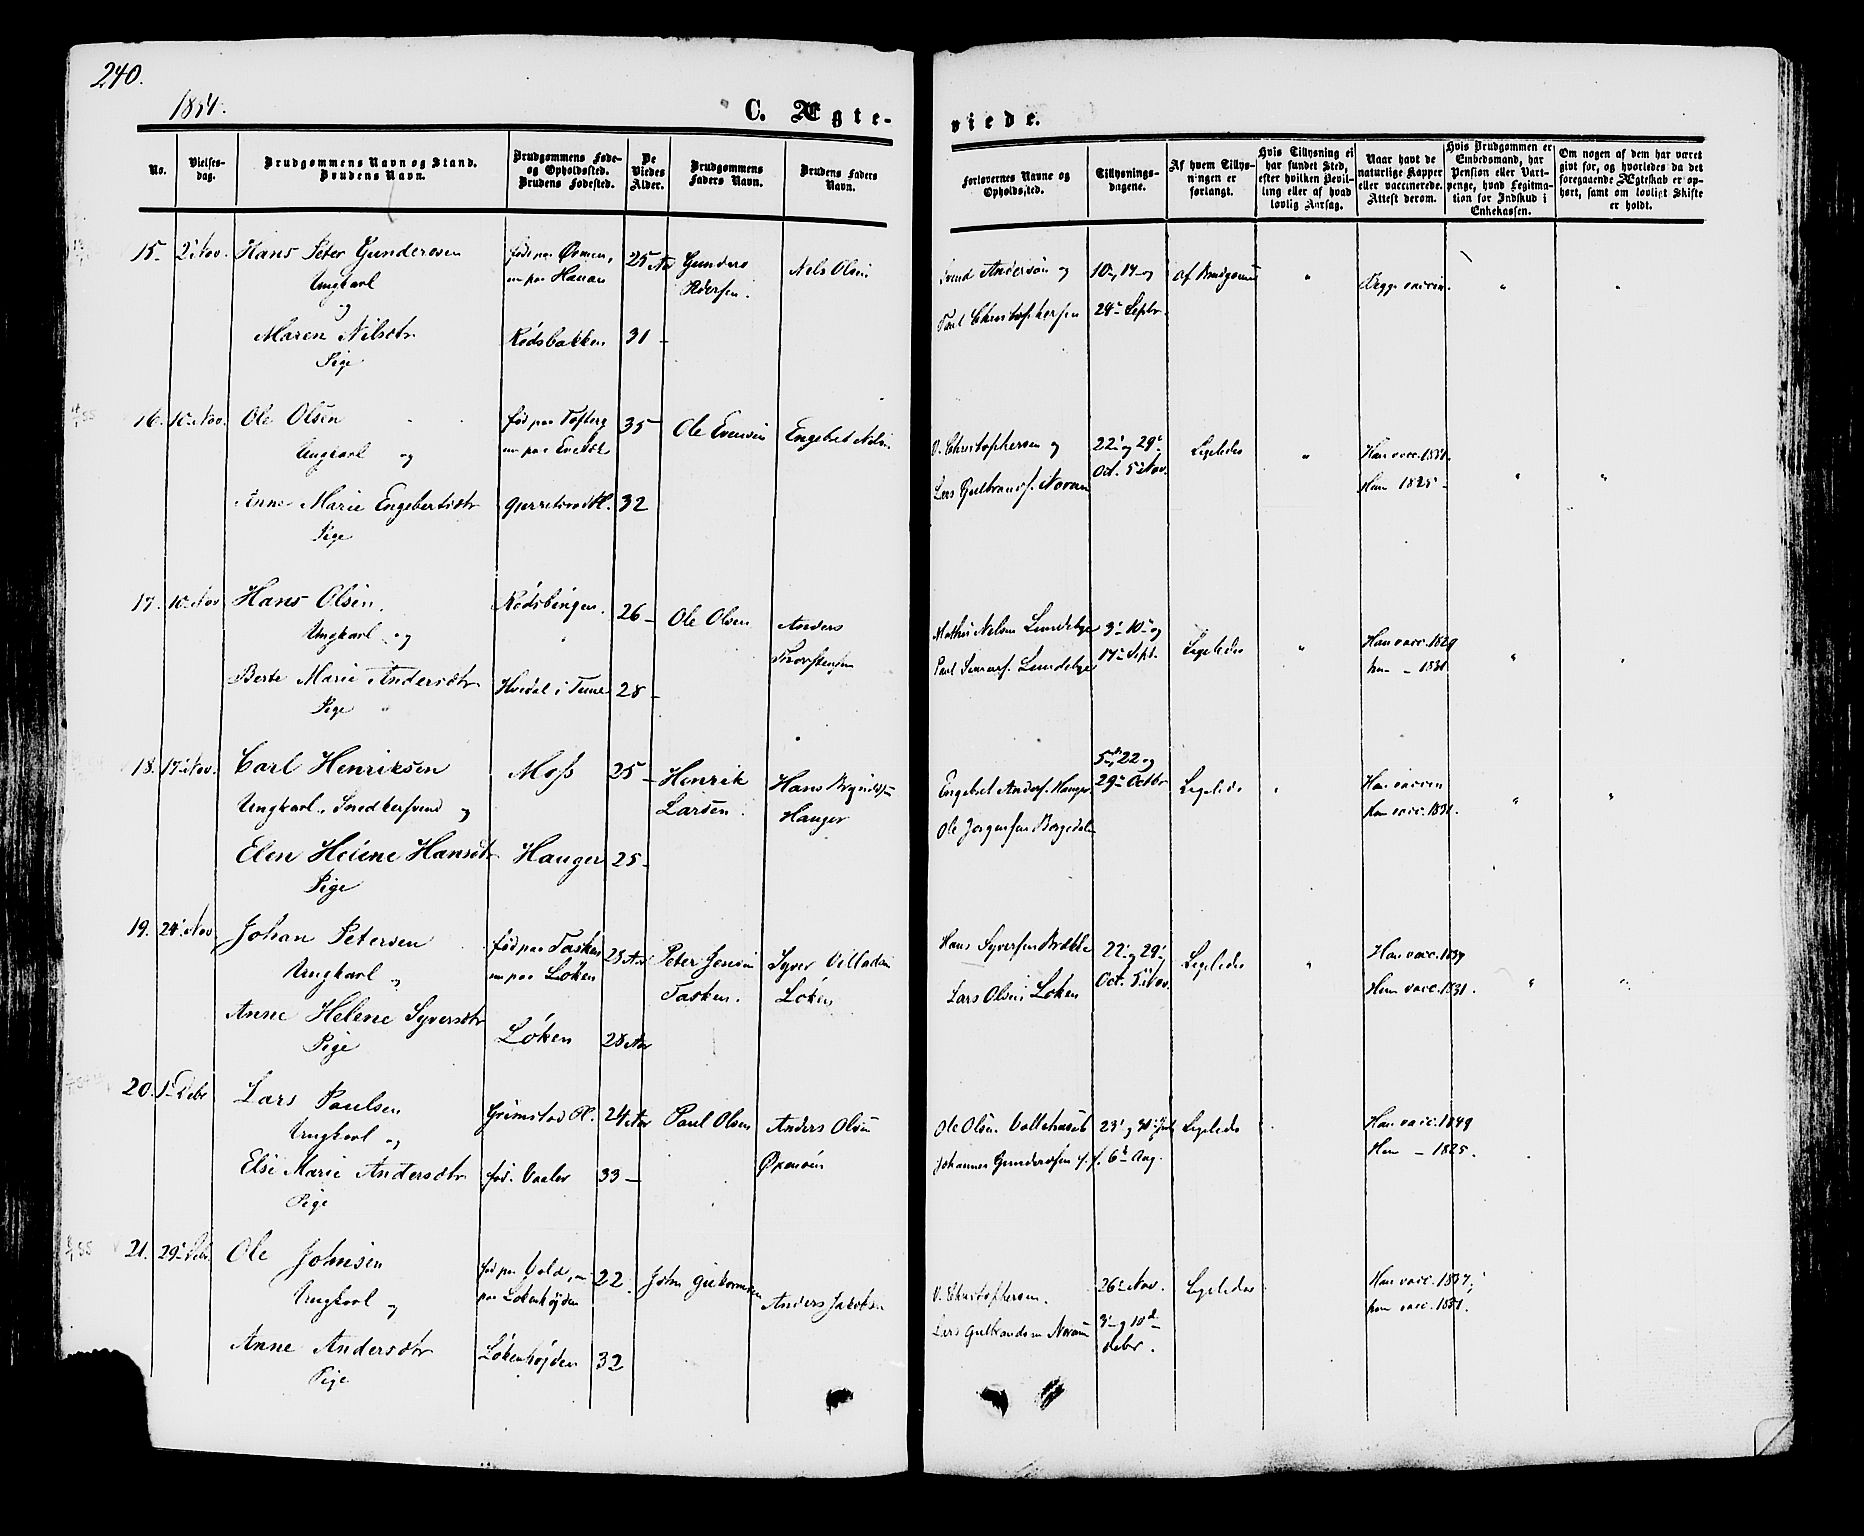 240.
1854.
C. Ægte-
viede.
No.
Vielses-
dag.
Brudgommens Navn og Stand.
Brudens Navn.
Brudgommens Føde-
og Opholdssted.
Brudens Fødested.
De
Viedes
Alder.
Brudgommens
Faders Navn.
Brudens Faders
Navn.
Forlovernes Navne og
Opholdssted.
Tillysnings-
dagene.
Af hvem Tillys-
ningen er
forlangt.
Hvis Tillysning ei
har fundet Sted,
efter hvilken Bevil-
ling eller af hvad
lovlig Aarsag.
Naar havt de
naturlige Kopper
eller vaccinerede.
Attest derom.
Hvis Brudgommen er
Embedsmand, har
Pension eller Vart-
penge, hvad Legitma-
tion for Indskud i
Enkekassen.
Om nogen af dem har været
givt før, og hvorledes da det
foregaaende Ægteskab er op-
hørt, samt om lovligt Skifte
er holdt.
15. 2 Nov. Hans Peter Gundersen
Ungkarl
og
Maren Nilsdtr
Pige
født paa
Rødsbakken
25 Aar
31 –
Gunders
Pedersen.
Nels Olsen
Svend Andersen og
Paul Christophersen
10, 17 og
24 Septbr.
Af Brudgommen
"
Begge vaccin.
"
"
16. 10 Nov. Ole Olsen
Ungkarl og
Anne Marie Engebretsdtr
Pige
født paa Tofteberg
35 –
32
Ole Evensen
Engebret Nilsen.
V. Christophersen og
Lars Gulbrands. Noreen
22 og 29
Oct. 5 Nov.
Ligeledes
"
Han vacc. 1831.
Hun 1825 –
"
"
17. 10 Nov Hans Olsen.
Ungkarl og
Berte Marie Andersdtr
Pige
Rødsbingen.
Hvidal i Tune
26 –
28 –
Ole Olsen
Anders
Thorstensen
Mathis Nelsen Lundebye
Paul Lundebye
3 10 og
17 Sept.
Ligeledes
"
Han vacc. 1829
hun – 1831
"
18. 17 Nov. Carl Henriksen
Ungkarl. Snedkersvend og
Elen Helene Hansdtr
Pige
Moss
Hauger
25 –
25 –
Henrik
Larsen.
Hans
Hauger
Engebret Anders. Hauger
Ole Jørgensen
5, 22 og
29 Octbr
Ligeledes
Han vaccin
hun vacc. 1831.
"
"
19. 24 Nov Johan Petersen
Ungkarl og
Anne Helene Syversdtr
Pige
født paa Tasken
nu paa Løken
Løken
28 Aar
28 Aar
Peter Jensen
Tasken.
Syver Villadsen
Løken
Hans Syversen Brække
Lars Olsen Løken
22 og 29
Oct. 5 Nov.
Ligeledes
"
Han vacc. 1837
Hun vacc. 1831.
"
"
20. 1 Debr Lars Paulsen
Ungkarl og
Else Marie Andersdtr
Pige
Grimstad Pl.
fød. Vaaler
24 Aar
33 –
Paul Olsen
Anders Olsen
Ole Olsen Vallehused
Johannes Gundersen
23 og 30 Juli
6 Aug.
Ligeledes
Han vacc. 1849
Hun – 1825.
21. 29 Debr. Ole Johnsen
Ungkarl og
Anne Andersdtr
Pige
født paa Vold, nu
paa Løkenhøjden
Løkenhøjden
22.
32
John Guttormsen
Anders Jacobsen
V. Christophersen.
Lars Gulbrandsen Noreen
26 Nov.
3 og 10
Debr.
Ligeledes
Han vacc. 1837;
hun vacc. 1831.